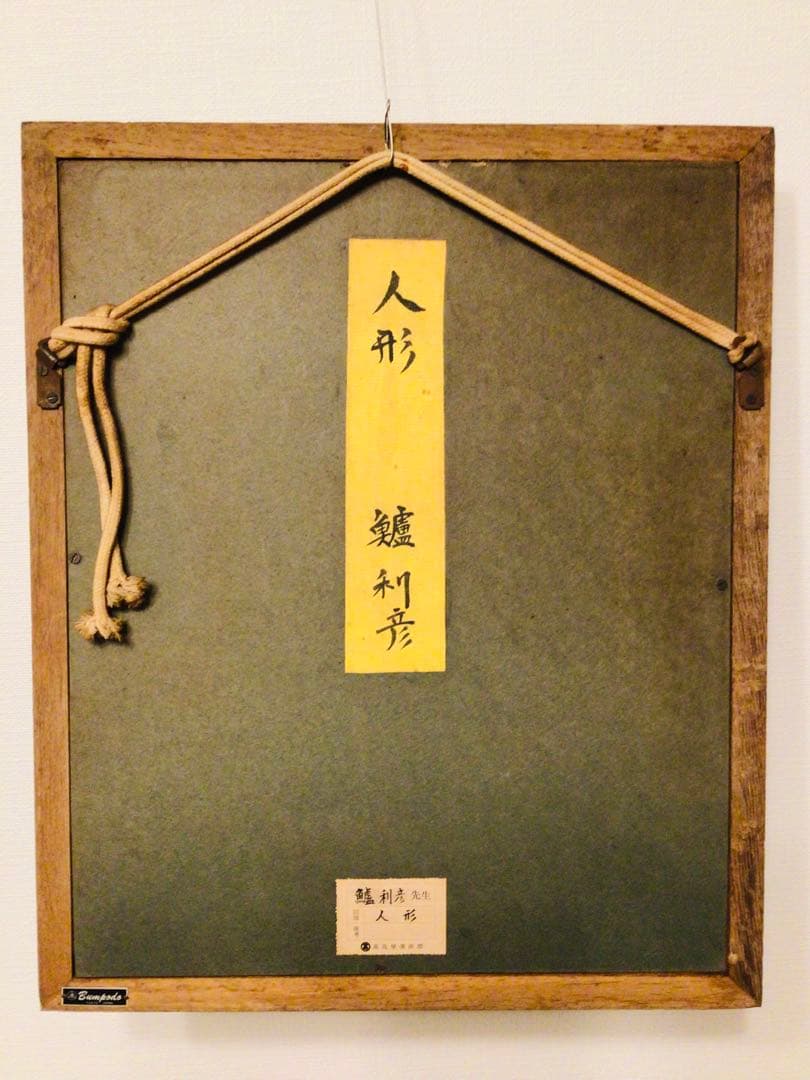 人形
鱸利彦
鱸利彦先生
人形
Bumpodo